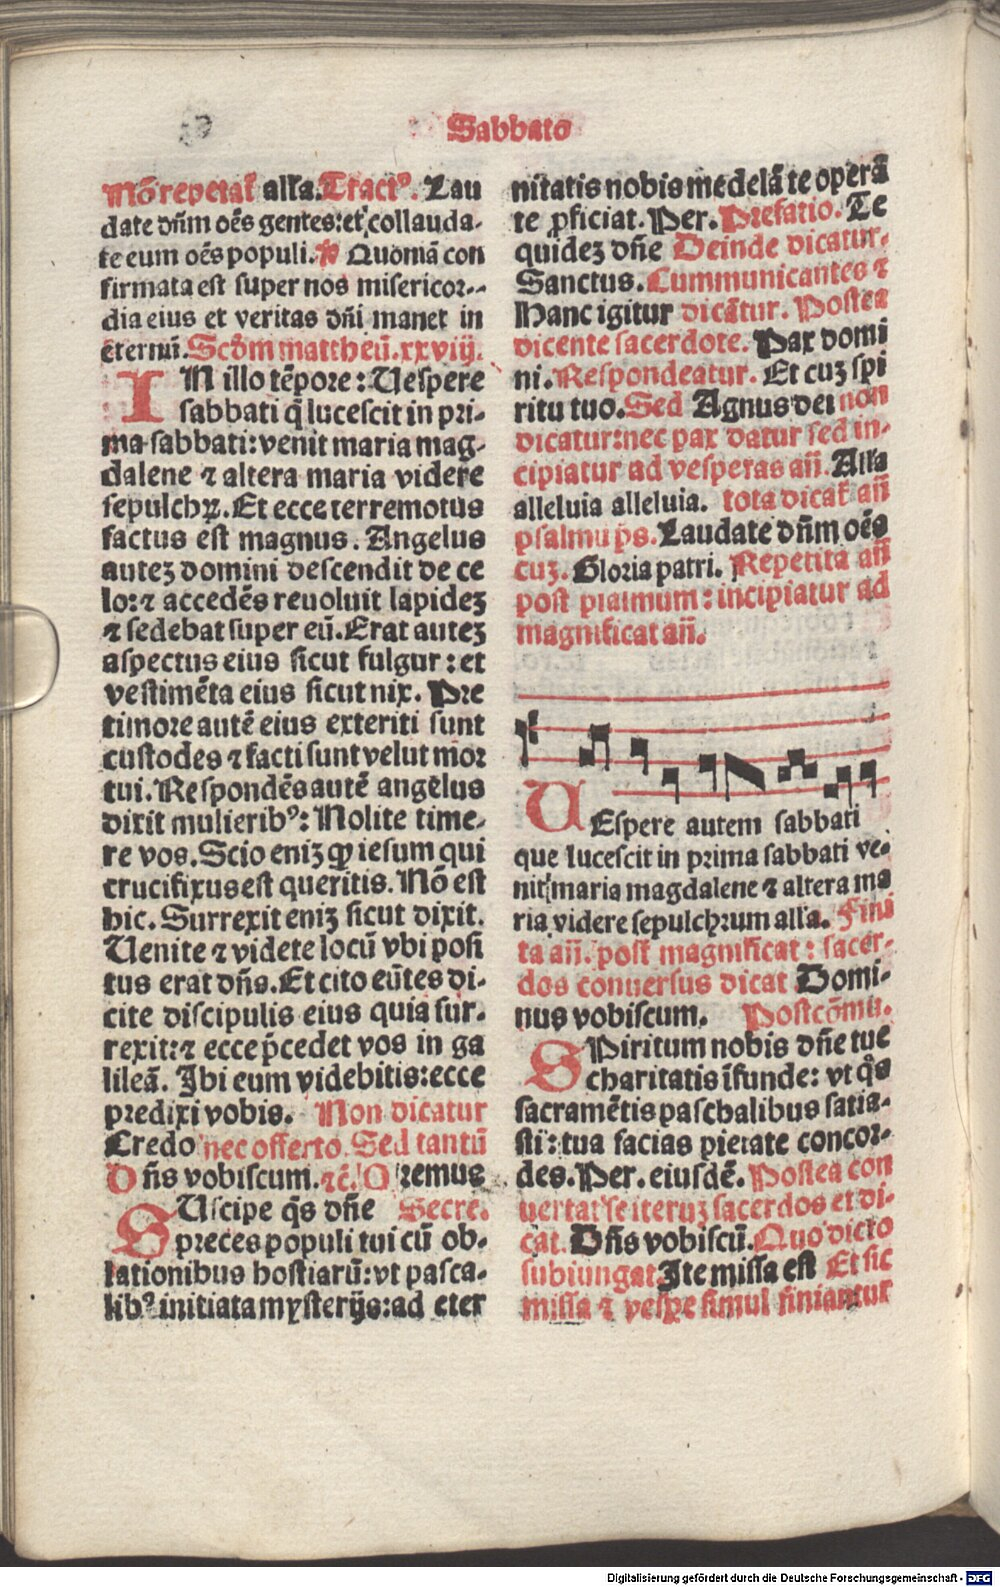 Sabbato
Nō repetat᷑ alľa. Tractꝰ. Lau
date dn̄m oēs gentes: et collauda-
te eum oēs populi. ℟ Quoniā con
firmata est super nos misericor-
dia eius et veritas dn̄i manet in
ēternū. Scďm mattheū. xxviij.
IN illo tēpore: Uespere
sabbati q̄ lucescit in pri-
ma sabbati: venit maria mag-
dalene ⁊ altera maria videre
sepulchꝝ. Et ecce terremotus
factus est magnus. Angelus
auteꝫ domini descendit de ce
lo: ⁊ accedēs reuoluit lapideꝫ
⁊ sedebat super eū. Erat auteꝫ
aspectus eius sicut fulgur: et
vestimēta eius sicut nix. Pre
timore autē eius exteriti sunt
custodes ⁊ facti sunt velut mor
tui. Respondēs autē angelus
dixit mulieribꝰ: Nolite time-
re vos. Scio eniꝫ ꝙ iesum qui
crucifixus est queritis. Nō est
hic. Surrexit eniꝫ sicut dixit.
Uenite ⁊ videte locū vbi posi
tus erat dn̄s. Et cito eūtes di-
cite discipulis eius quia sur-
rexit: ⁊ ecce p̄cedet vos in ga
lileā. Ibi eum videbitis: ecce
predixi vobis. Non dicatur
Credo nec offerto. Sed tantū
Dn̄s vobiscum. ⁊c̄. Oremus
SUscipe q̄s dn̄e Secre.
preces populi tui cū ob-
lationibus hostiarū: vt pasca-
libꝰ initiata mysterijs: ad eter
nitatis nobis medelā te operā
te ꝓficiat. Per. Prefatio. Te
quideꝫ dn̄e Deinde dicatur.
Sanctus. Cummunicantes ⁊
Hanc igitur dicātur. Postea
dicente sacerdote. Pax domi
ni. Respondeatur. Et cuꝫ spi
ritu tuo. Sed Agnus dei non
dicatur: nec pax datur sed in-
cipiatur ad vesperas an̄. Alľa
alleluia alleluia. tota dicat᷑ an̄
psalmu p̄s. Laudate dn̄m oēs
cuꝫ. Gloria patri. Repetita an̄
post psalmum: incipiatur ad
magnificat an̄.
UEspere autem sabbati
que lucescit in prima sabbati ve-
nit maria magdalene ⁊ altera ma
ria videre sepulchrum alľa. Fini
ta an̄. post magnificat: sacer-
dos conuersus dicat Domi-
nus vobiscum. Postcōmu.
SPiritum nobis dn̄e tue
charitatis īfunde: vt q̄s
sacramētis paschalibus satia-
sti: tua facias pietate concor-
des. Per. eiusdē. Postea con
uertat᷑ se iteruꝫ sacerdos et di-
cat. Dn̄s vobiscū. Quo dicto
subiungat Ite missa est Et sic
missa ⁊ vesꝑe simul finiantur
Digitalisierung gefördert durch die Deutsche Forschungsgemeinschaft - DFG